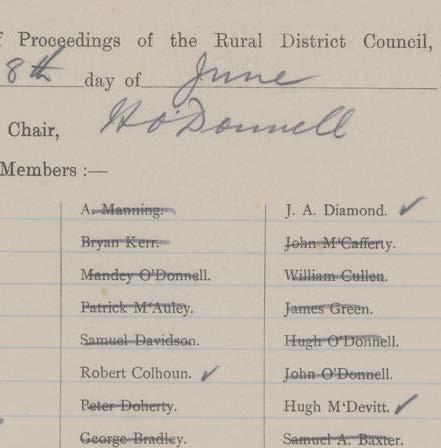 f Proceedings of the Rural District Council,
8th day of June
Chair, H O'Donnell
Members :—
A. Manning.
Bryan Kerr.
Mandey O'Donnell.
Patrick M'Auley.
Samuel Davidson.
Robert Colhoun. ✓
Peter Doherty.
George Bradley.
J. A. Diamond. ✓
John M'Cafferty.
William Cullen.
James Green.
Hugh O'Donnell.
John O'Donnell.
Hugh M'Devitt. ✓
Samuel A. Baxter.